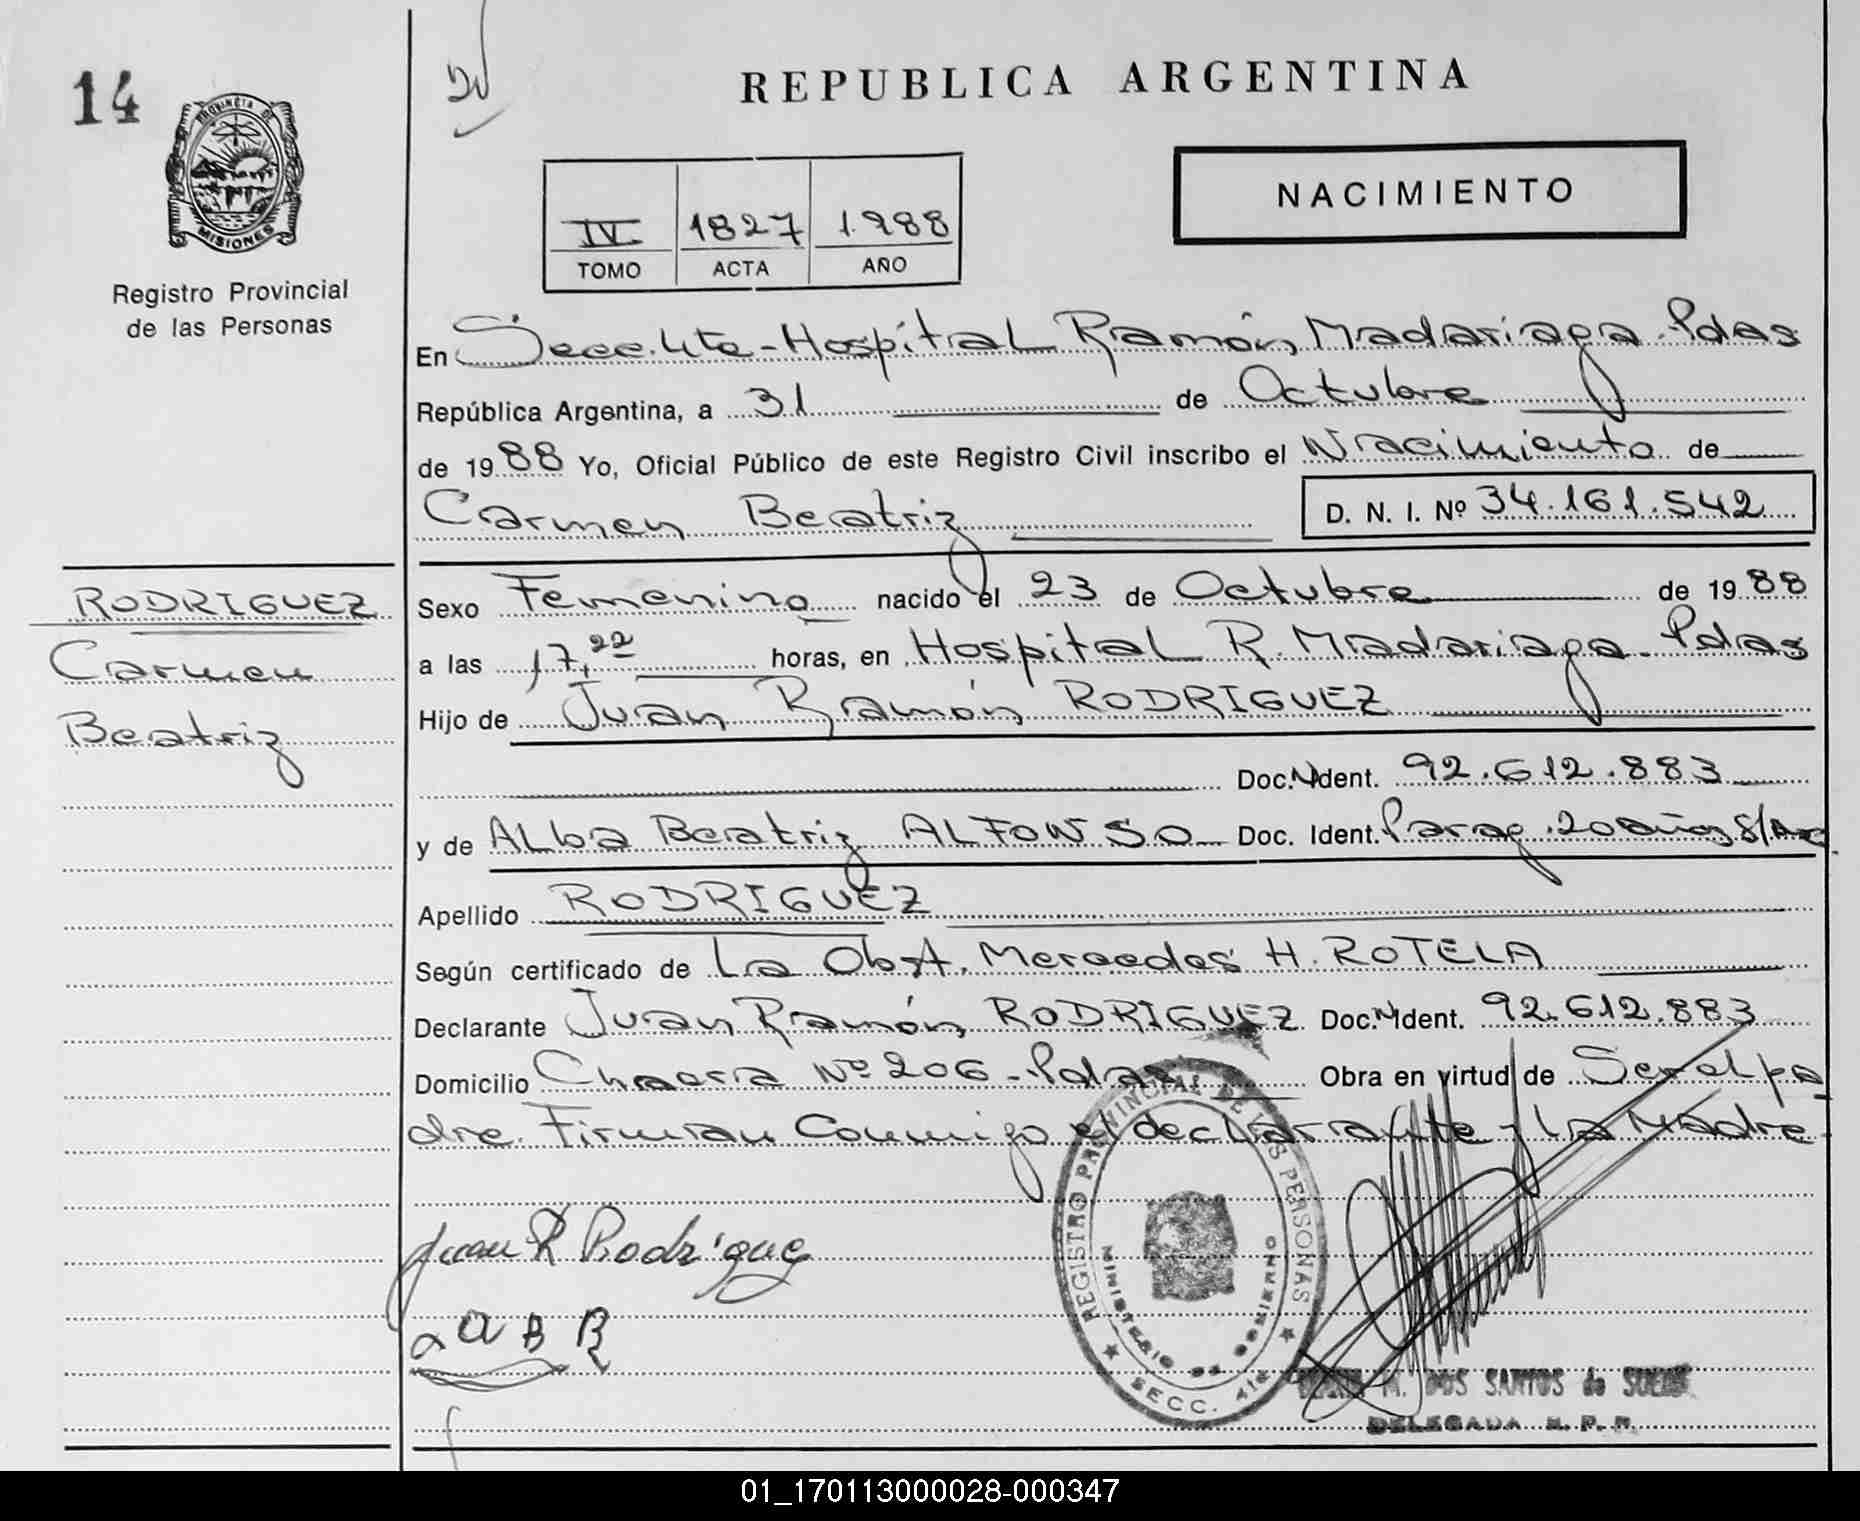 14
PROVINCIA DE
MISIONES
Registro Provincial
de las Personas
REPUBLICA ARGENTINA
NACIMIENTO
IV 1827 1.988
TOMO ACTA AÑO
En Secc. 4ta - Hospital Ramón Madariaga. Pdas
República Argentina, a 31 de Octubre
de 1988 Yo, Oficial Público de este Registro Civil inscribo el Nacimiento de
Carmen Beatriz D. N. I. Nº 34.161.542
RODRIGUEZ
Carmen
Beatriz
Sexo Femenino nacido el 23 de Octubre de 1988
a las 17,22 horas, en Hospital R. Madariaga. Pdas
Hijo de Juan Ramón RODRIGUEZ
Doc. N Ident. 92.612.883
y de ALba Beatriz ALFONSO Doc. Ident. Parag. 20 años S/
Apellido RODRIGUEZ
Según certificado de La Obst. Mercedes H. ROTELA
Declarante Juan Ramón RODRIGUEZ Doc. N Ident. 92.612.883
Domicilio Chacra Nº 206 - Pdas Obra en virtud de Ser el pa
dre. Firman Conmigo el declarante y La Madre
Juan R Rodrigue
a B R
REGISTRO PROVINCIAL DE LAS PERSONAS
MINISTERIO DE GOBIERNO
SECC. 4ta
M. DOS SANTOS de
DELEGADA R. P. P.
01_170113000028-000347